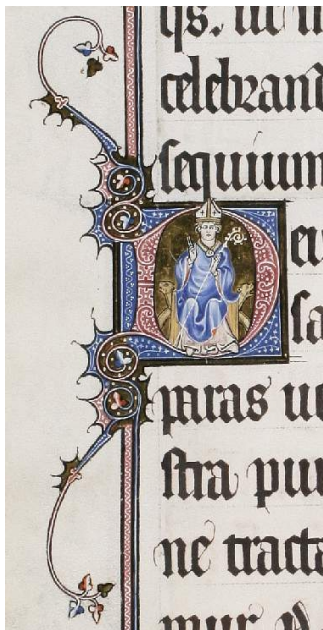 celebran
sequium
D eu
sa
paras ue
stra pur
ne tracta
mur